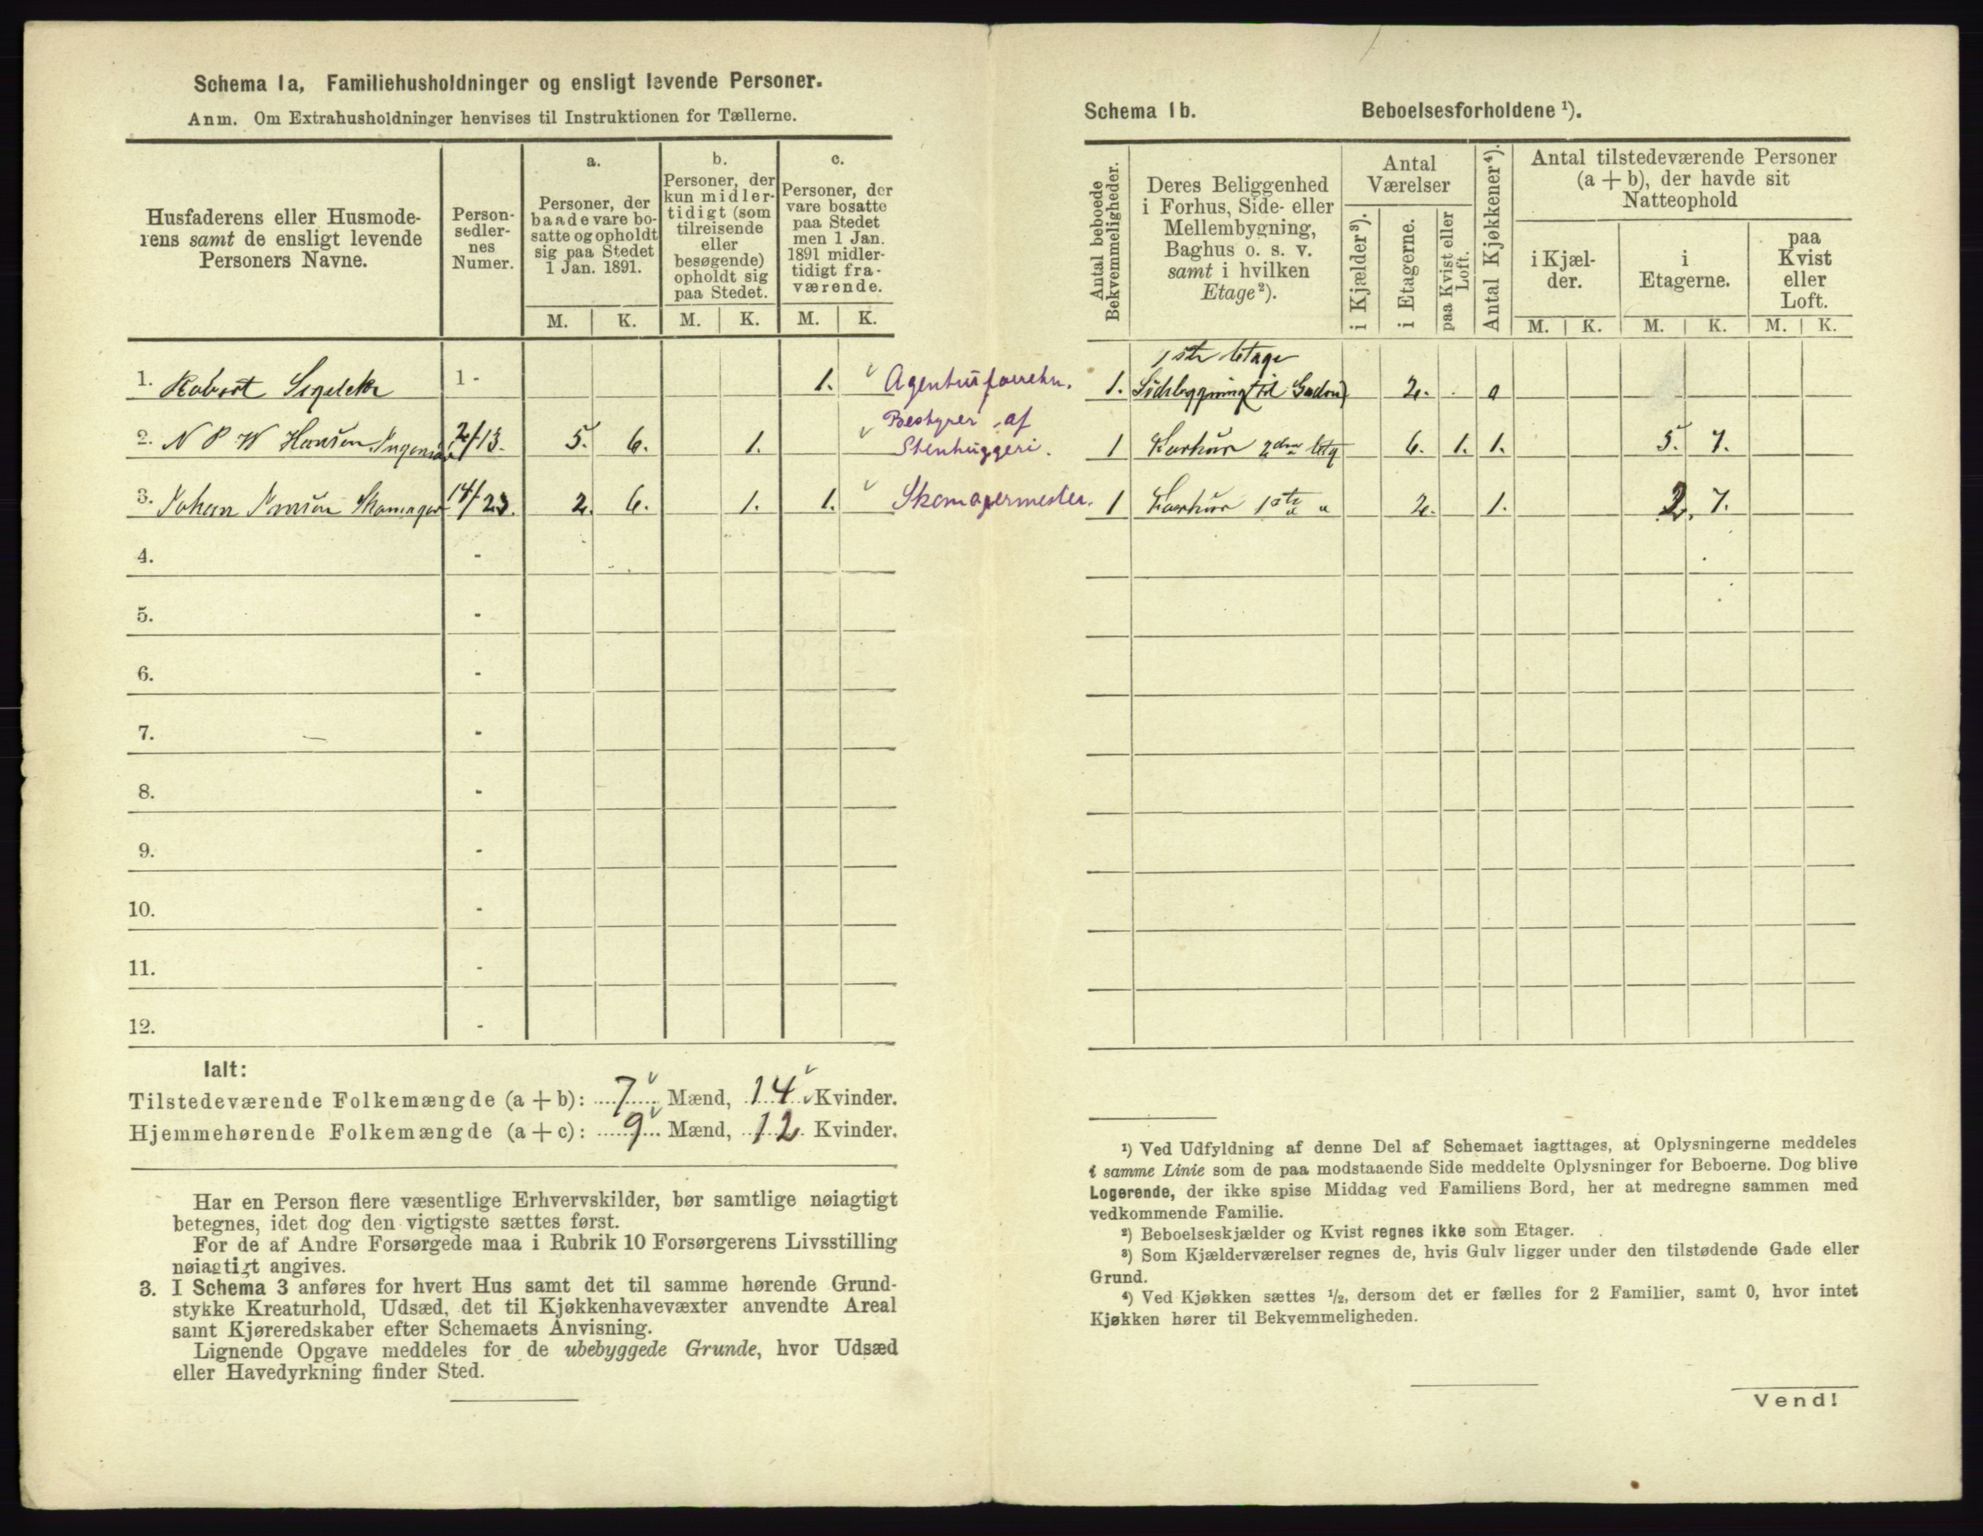 Schema 1a, Familiehusholdninger og ensligt levende Personer.
Anm. Om Extrahusholdninger henvises til Instruktionen for Tællerne.
Husfaderens eller Husmode-
rens samt de ensligt levende
Personers Navne.
Person-
sedler-
nes
Numer.
a.
Personer, der
baade vare bo-
satte og opholdt
sig paa Stedet
1 Jan. 1891.
b.
Personer, der
kun midler-
tidigt (som
tilreisende
eller
besøgende)
opholdt sig
paa Stedet.
c.
Personer, der
vare bosatte
paa Stedet
men 1 Jan.
1891 midler-
tidigt fra-
værende.
M. K. M. K. M. K.
1. Robert 1 - 1.
2. N P W Hansen 2/13. 5. 6. 1. Bestyrer af
Stenhuggeri.
3. Johan 14/23. 2. 6. 1. 1. Skomagermester.
4. -
5. -
6. -
7. -
8. -
9. -
10. -
11. -
12. -
Ialt:
Tilstedeværende Folkemængde (a + b): 7 Mænd, 14 Kvinder.
Hjemmehørende Folkemængde (a + c): 9 Mænd, 12 Kvinder.
Har en Person flere væsentlige Erhvervskilder, bør samtlige nøiagtigt
betegnes, idet dog den vigtigste sættes først.
For de af Andre Forsørgede maa i Rubrik 10 Forsørgerens Livsstilling
nøiagtigt angives.
3. I Schema 3 anføres for hvert Hus samt det til samme hørende Grund-
stykke Kreaturhold, Udsæd, det til Kjøkkenhavevæxter anvendte Areal
samt Kjøreredskaber efter Schemaets Anvisning.
Lignende Opgave meddeles for de ubebyggede Grunde, hvor Udsæd
eller Havedyrkning finder Sted.
Schema 1b. Beboelsesforholdene ¹).
Antal beboede
Bekvemmeligheder.
Deres Beliggenhed
i Forhus, Side- eller
Mellembygning,
Baghus o. s. v.
samt i hvilken
Etage²).
Antal
Værelser
i Kjælder³).
i Etagerne.
paa Kvist eller
Loft.
Antal Kjøkkener⁴).
Antal tilstedeværende Personer
(a + b), der havde sit
Natteophold
i Kjæl-
der.
i
Etagerne.
paa
Kvist
eller
Loft.
M. K. M. K. M. K.
1ste Etage
1. 2. 0
1 2den 6. 1. 1. 5. 7.
1 1ste " 2. 1. 2. 7.
¹) Ved Udfyldning af denne Del af Schemaet iagttages, at Oplysningerne meddeles
i samme Linie som de paa modstaaende Side meddelte Oplysninger for Beboerne. Dog blive
Logerende, der ikke spise Middag ved Familiens Bord, her at medregne sammen med
vedkommende Familie.
²) Beboelseskjælder og Kvist regnes ikke som Etager.
³) Som Kjælderværelser regnes de, hvis Gulv ligger under den tilstødende Gade eller
Grund.
⁴) Ved Kjøkken sættes ½, dersom det er fælles for 2 Familier, samt 0, hvor intet
Kjøkken hører til Bekvemmeligheden.
Vend!